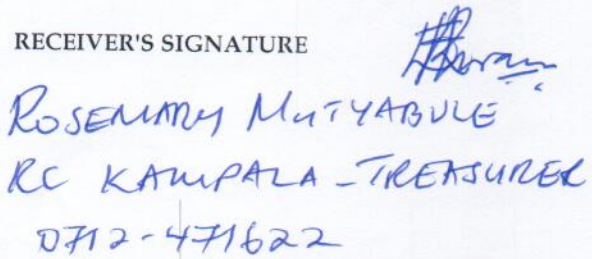 RECEIVER'S SIGNATURE
ROSEMARY MUTYABULE
RC KAMPALA - TREASURER
0712-471622